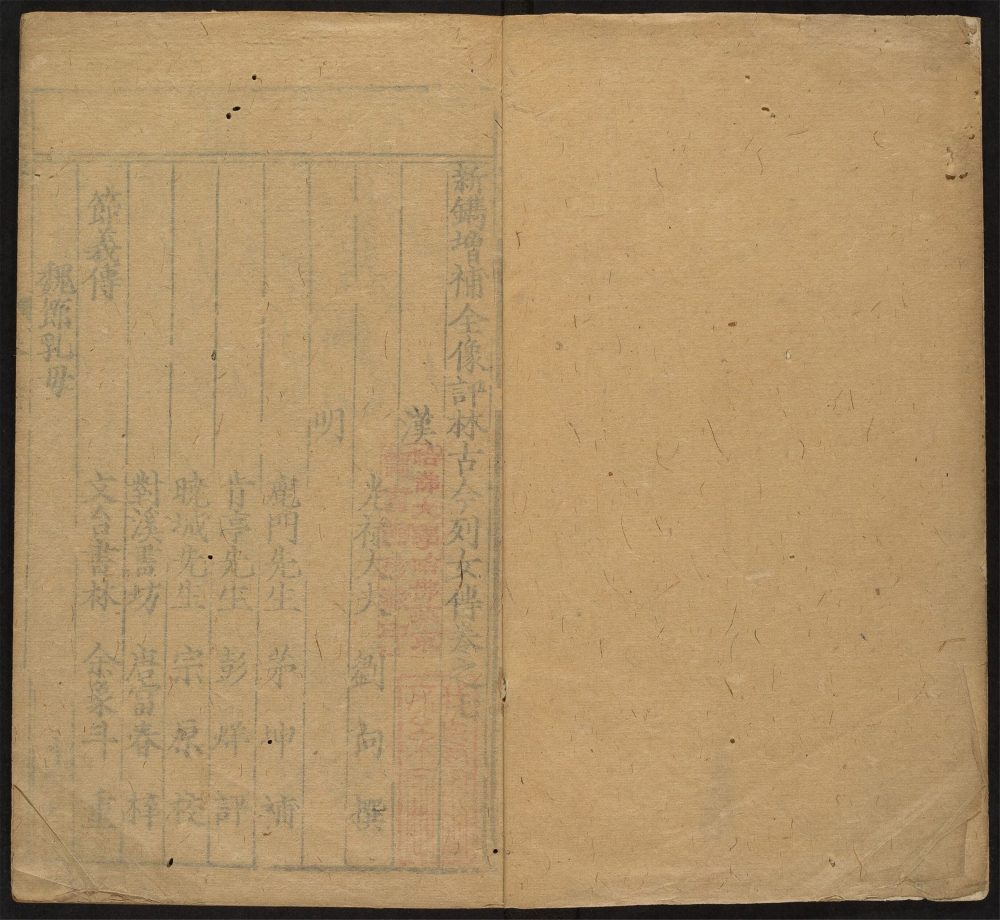 新鐫增補全像評林古今列女傳卷之七
漢
光祿大夫 劉向 撰
明
鹿門先生 茅坤 補
肯亭先生 彭烊 評
曉城先生 宗原 校
對溪書坊 唐富春 梓
節義傳
文台書林 余象斗 重
魏節乳母
哈佛大學哈佛燕京